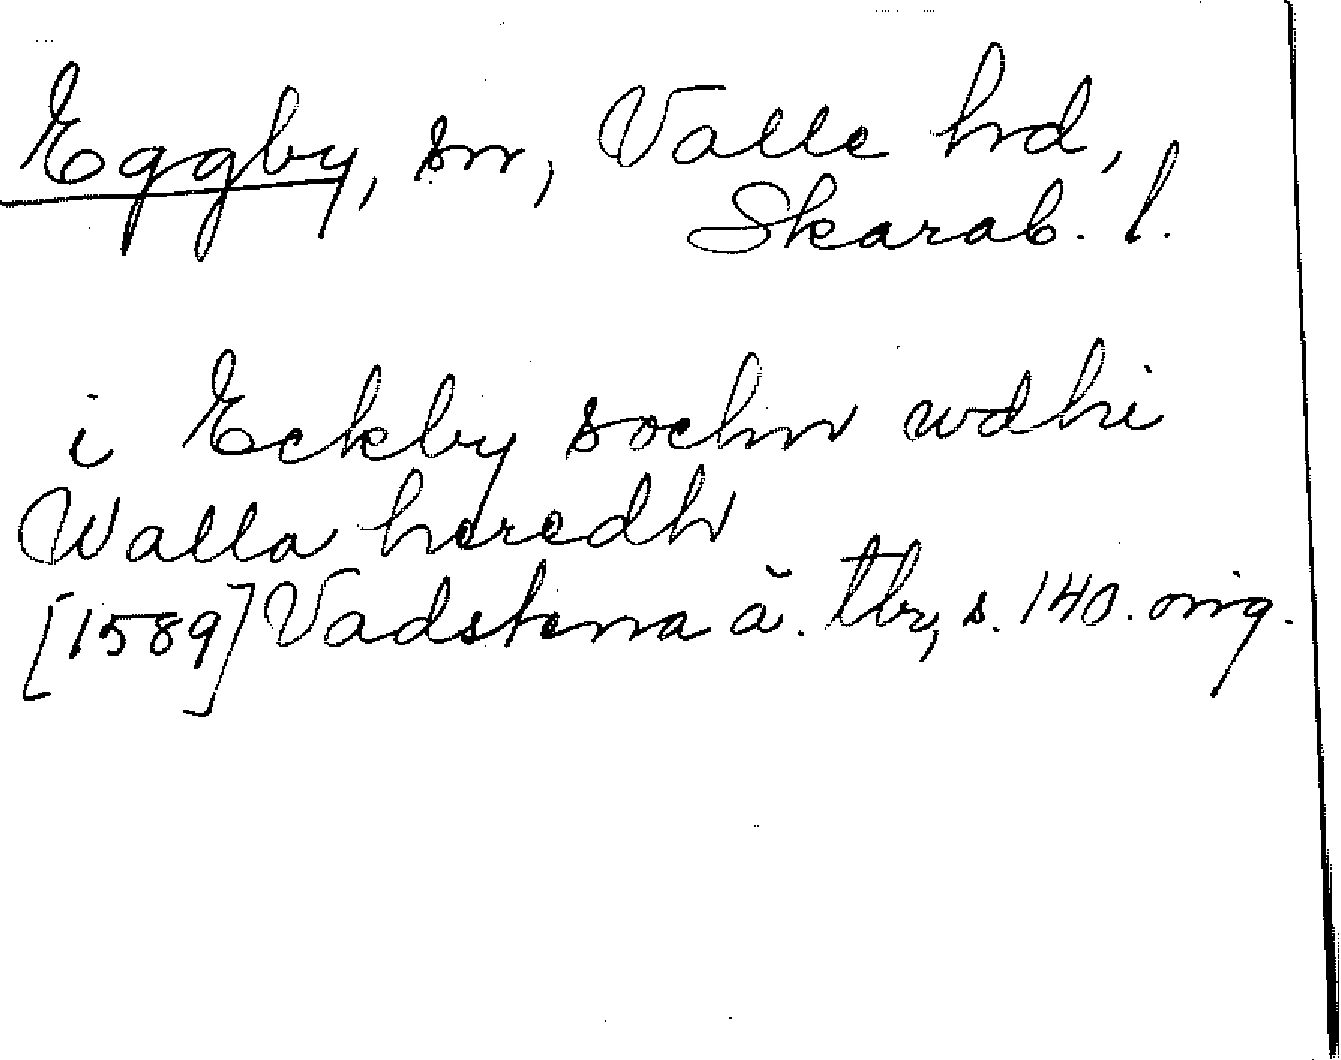 Eggby, sn, Valle hrd,
Skarab. l.
i Eckby sochn wdhi
Walla heredh
[1589] Vadstena ä. tb, s. 140. orig.